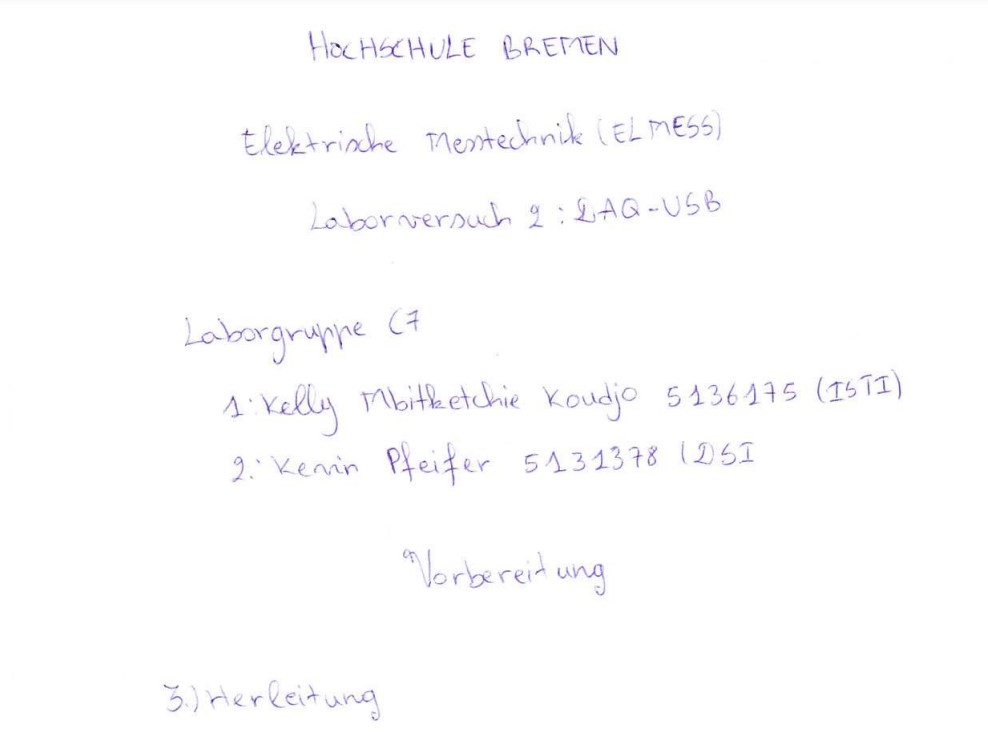 HOCHSCHULE BREMEN
Elektrische Messtechnik (ELMESS)
Laborversuch 2 : DAQ-USB
Laborgruppe C7
1: Kelly Mbitketchie Koudjo 5136175 (ISTI)
2: Kevin Pfeifer 5131378 (DSI
Vorbereitung
3.) Herleitung